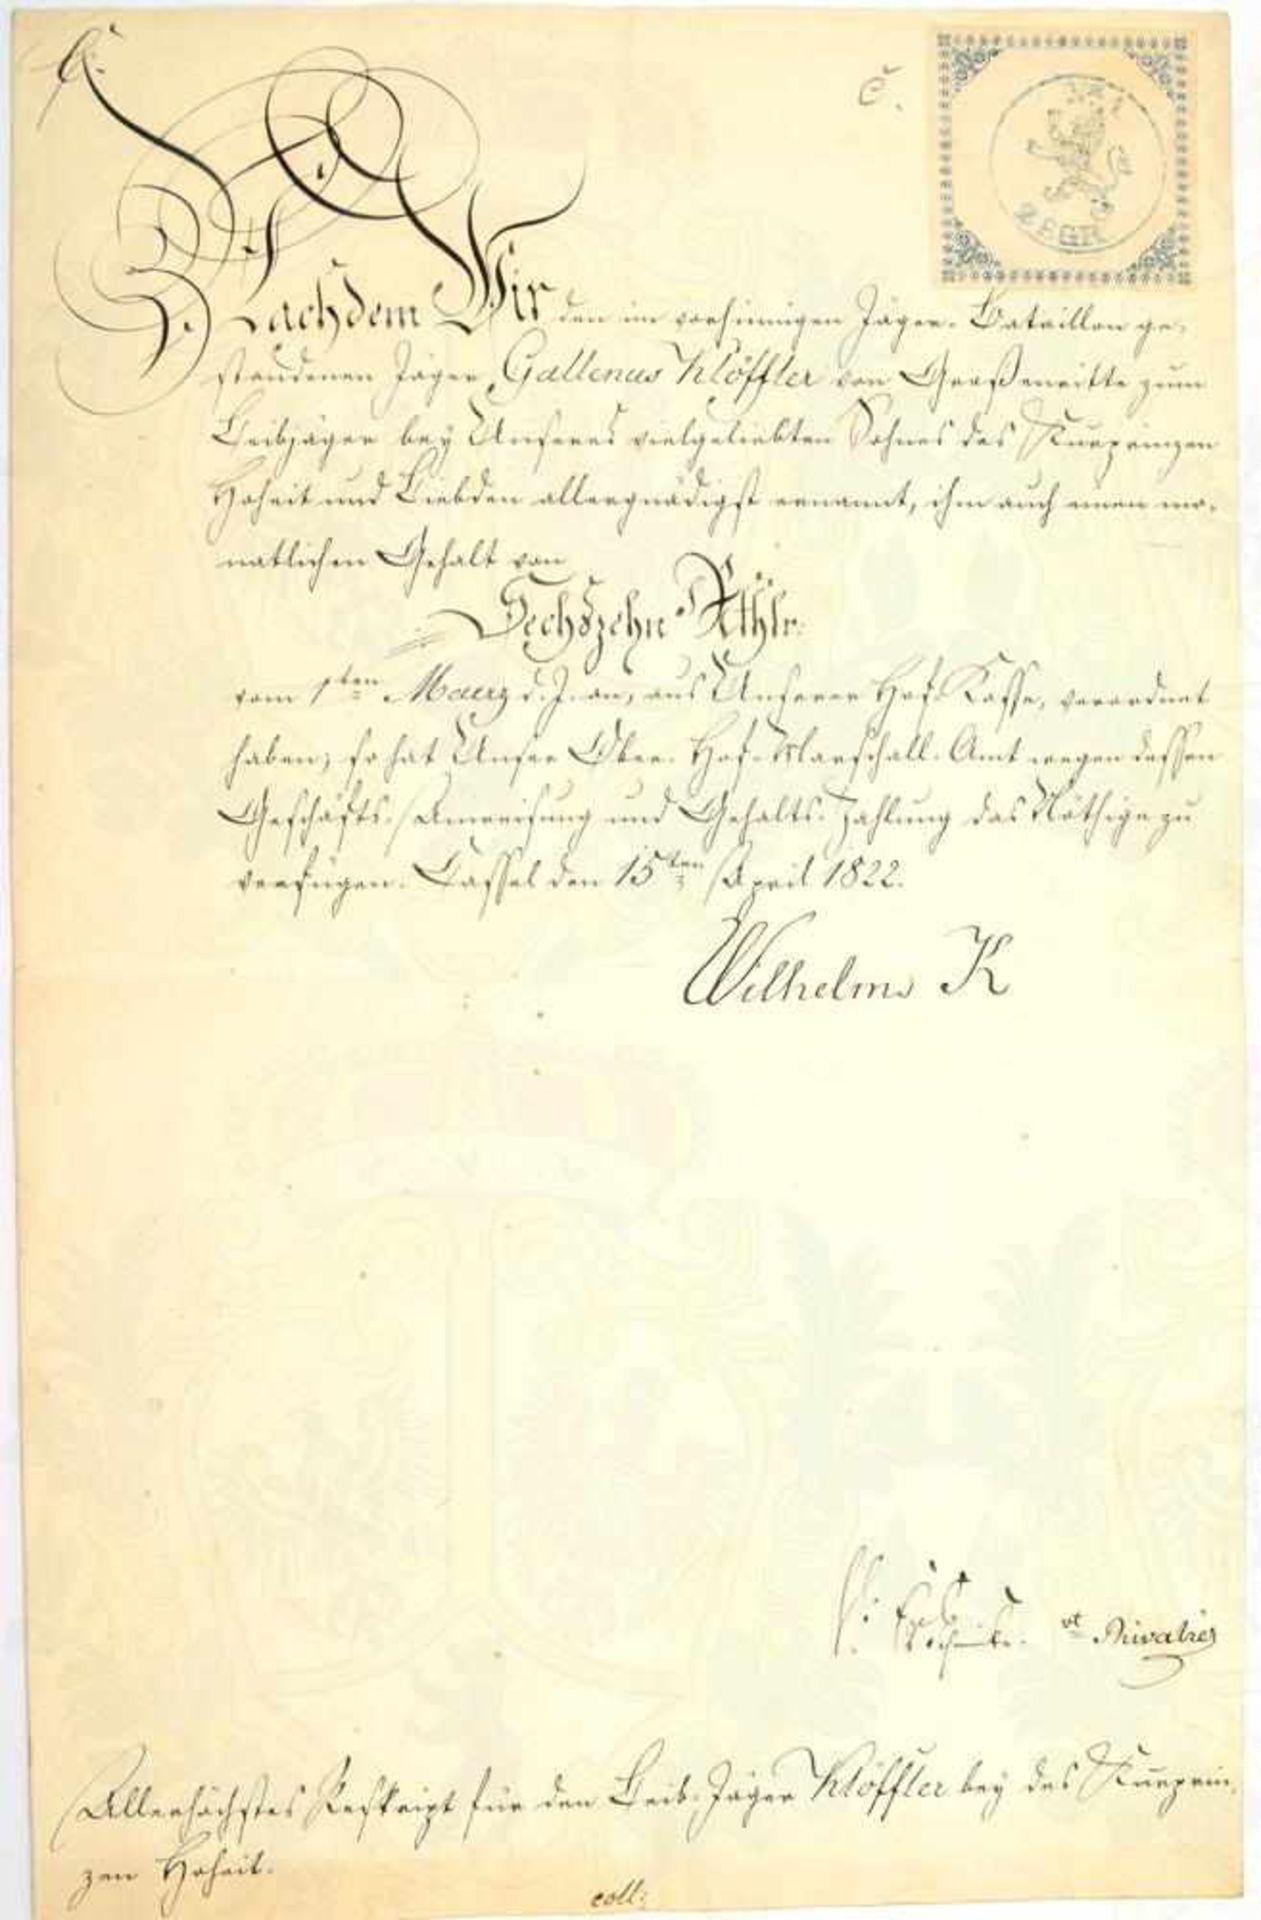 C.
2 EGR
Nachdem Wir den im vorhinnigen Jäger-Bataillon ge-
standenen Jäger Gallenus Klöffler von Großenritte zum
Leibjäger bey Unseres vielgeliebten Sohnes des Kurprinzen
Hoheit und Liebden allergnädigst ernannt, ihm auch einen mo-
natlichen Gehalt von
Sechszehn Rthlr.
vom 1ten Maerz d. J. an, aus Unserer Hof-Kasse, verordnet
haben; so hat Unser Ober-Hof-Marschall-Amt wegen dessen
Geschäfts-Anweisung und Gehalts-Zahlung das Nöthige zu
verfügen. Cassel den 15ten April 1822.
Wilhelm K
vt Rivalier
Allerhöchstes Reskript für den Leib-Jäger Klöffler bey des Kurprin-
zen Hoheit.
coll: